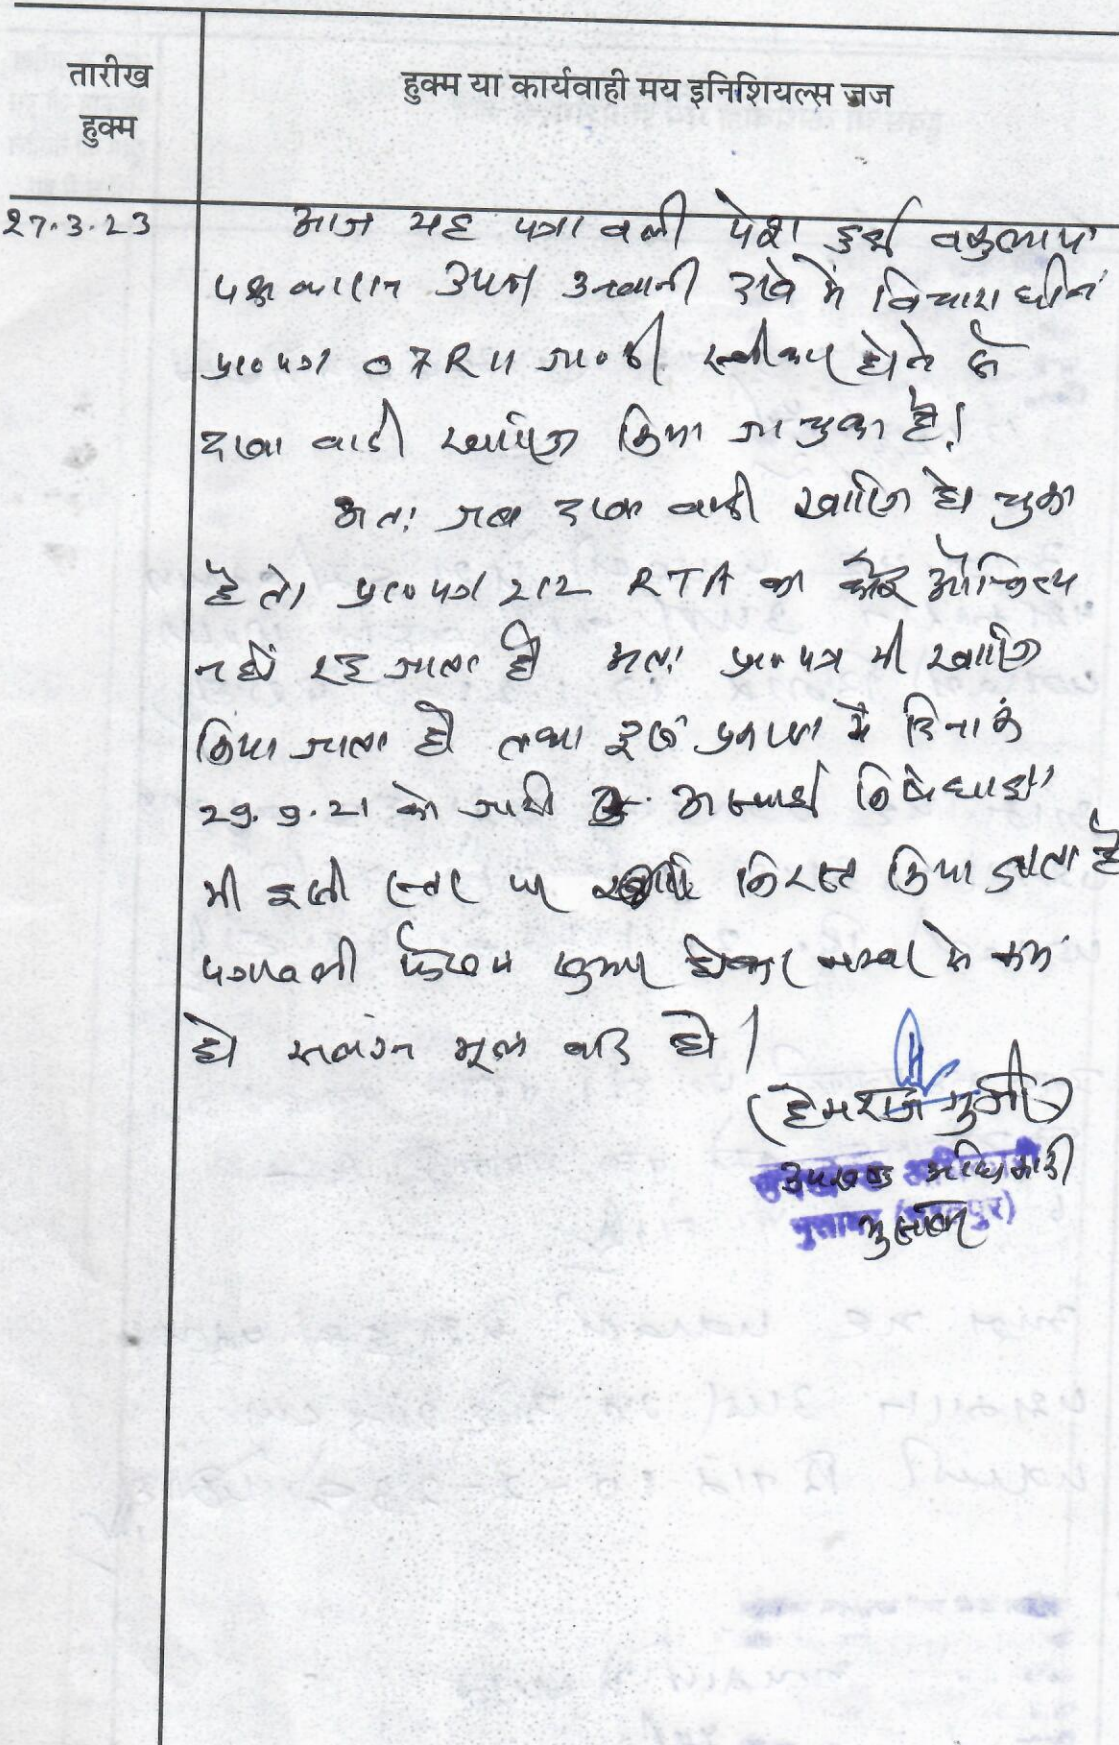 तारीख
हुक्म
हुक्म या कार्यवाही मय इनिशियल्स जज
27.3.23
आज यह पत्रावली पेश हुई वकुलाय
पक्षकारान उप० उनवानी दावे में विचाराधीन
प्रा०पत्र O7R11 जा०दी स्वीकार होने से
दावा वादी खारिज किया जा चुका है।
अतः जब दावा वादी खारिज हो चुका
है तो प्रा०पत्र 212 RTA का कोई औचित्य
नहीं रह जाता है अतः प्रा०पत्र भी खारिज
किया जाता है तथा इस प्रकरण में दिनांक
29.9.21 को जारी अस्थाई निषेधाज्ञा
भी इसी स्तर पर निरस्त किया जाता है
पत्रावली फैसल शुमार होकर नम्बर से कम
हो संलग्न मूल वाद हो।
(हेमराज गुर्जर)
उपखण्ड अधिकारी
भुसावर
उपखण्ड अधिकारी
भुसावर (भरतपुर)